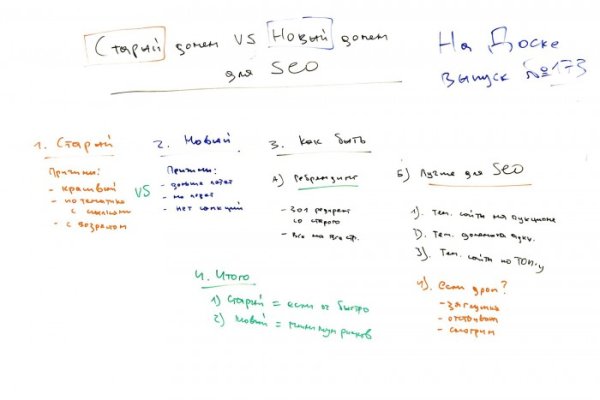 Старый домен VS Новый домен
для SEO
На Доске
выпуск №173
1. Старый
Причины:
- красивый
- по тематике
с ссылками
- с возрастом
VS
2. Новый
Причины:
- дольше
- не
- нет санкций
3. Как быть
А) Ребрендинг
- 301 редирект
со старого
- Все на все стр.
Б) Лучше для SEO
1). Тем. сайты на аукционе
2). Тем. домены аукц.
3). Тем. сайты по ТОП-у
4). Если дроп?
- заглушка
- отстоивать
- смотрим
4. Итого
1) Старый = если оч быстро
2) Новый = минимум рисков